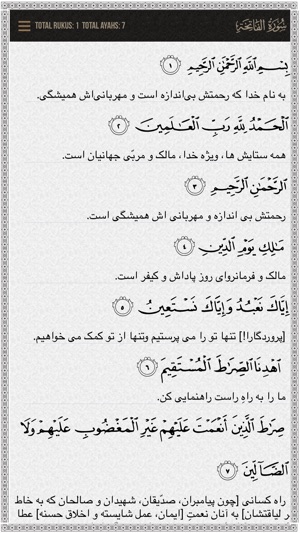 TOTAL RUKUS: 1 TOTAL AYAHS: 7 سُورَةُ الفَاتِحَة
بِسْمِ اللَّهِ الرَّحْمَٰنِ الرَّحِيمِ ١
به نام خدا که رحمتش بی‌اندازه است و مهربانی‌اش همیشگی.
الْحَمْدُ لِلَّهِ رَبِّ الْعَالَمِينَ ٢
همه ستایش ها، ویژه خدا، مالک و مربّی جهانیان است.
الرَّحْمَٰنِ الرَّحِيمِ ٣
رحمتش بی اندازه و مهربانی اش همیشگی است.
مَالِكِ يَوْمِ الدِّينِ ٤
مالک و فرمانروای روز پاداش و کیفر است.
إِيَّاكَ نَعْبُدُ وَإِيَّاكَ نَسْتَعِينُ ٥
[پروردگارا!] تنها تو را می پرستیم وتنها از تو کمک می خواهیم.
اهْدِنَا الصِّرَاطَ الْمُسْتَقِيمَ ٦
ما را به راهِ راست راهنمایی کن.
صِرَاطَ الَّذِينَ أَنْعَمْتَ عَلَيْهِمْ غَيْرِ الْمَغْضُوبِ عَلَيْهِمْ وَلَا
الضَّالِّينَ ٧
راه کسانی [چون پیامبران، صدّیقان، شهیدان و صالحان که به خاط
ر لیاقتشان] به آنان نعمتِ [ایمان، عمل شایسته و اخلاق حسنه] عطا